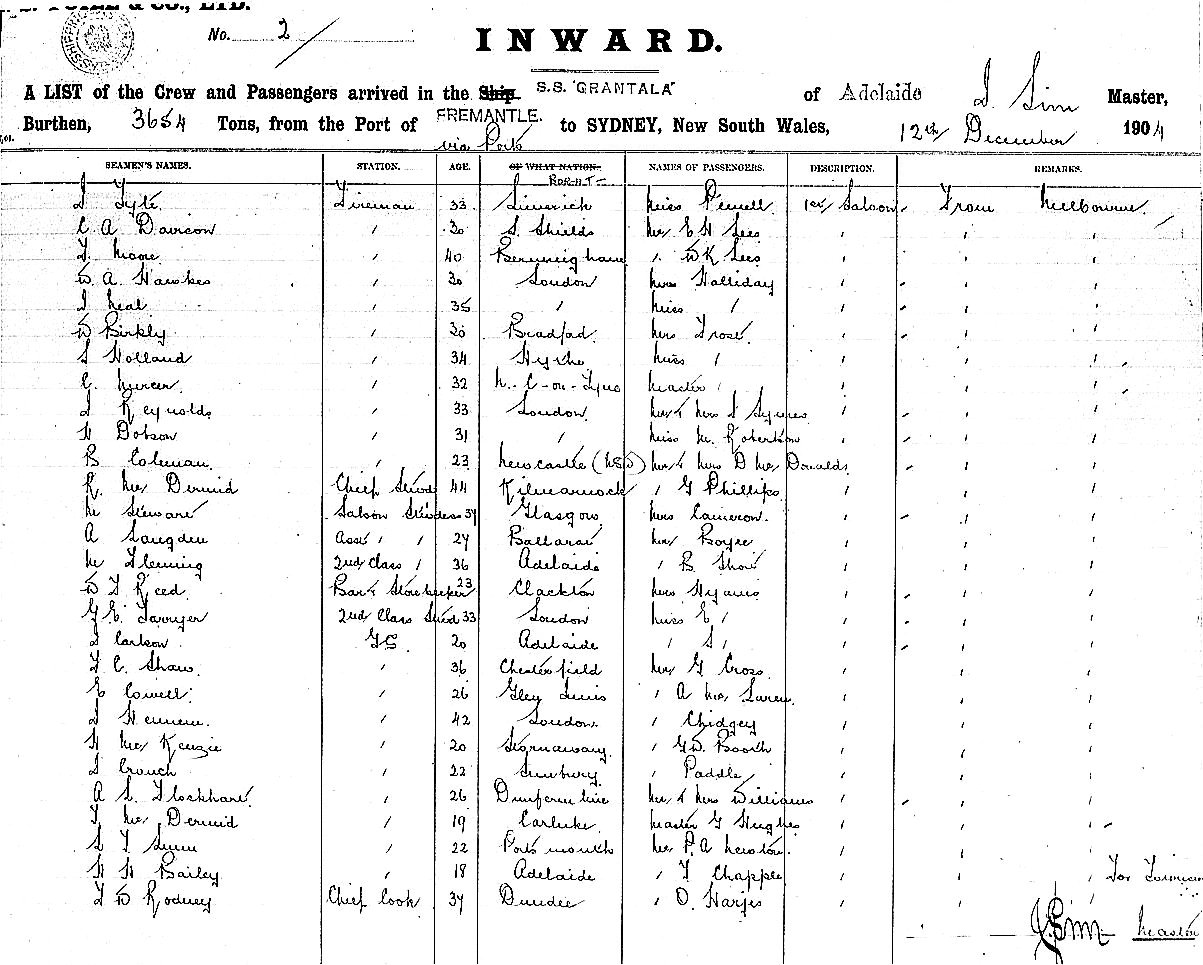 & CO., LTD.
No. 2
INWARD.
A LIST of the Crew and Passengers arrived in the Ship S.S. "GRANTALA" of Adelaide J Sim Master,
Burthen, 3654 Tons, from the Port of FREMANTLE. via Ports to SYDNEY, New South Wales, 12th December 1904
SEAMEN'S NAMES. STATION. AGE. OF WHAT NATION. NAMES OF PASSENGERS. DESCRIPTION. REMARKS.
Fireman 33 Limerick Miss 1st Saloon From Melbourne
C A Davison " 30 S. Shields Mr E H Lees " "
Moore " 40 " W K Lees " "
W. A. Hawkes " 30 London Mrs Halliday " "
J Neal " 35 " Miss " " "
W Birkly " 30 Bradford Mrs Frost " "
S Holland " 34 Hythe Miss " " "
C. Mercer " 32 N. C-on-Tyne Master " " "
J Reynolds " 33 London Mr & Mrs J " "
H Dobson " 31 " Miss M. Robertson " "
B Coleman " 23 Newcastle (NSW) Mr & Mrs D Mc Donald " "
R. Mc Dermid Chief Stewd 44 Kilmarnock " G Phillips " "
M Stewart Saloon Stewdess 37 Glasgow Mrs Cameron " "
A Langden Asst " " 27 Ballarat Mr Boyce " "
M Fleming 2nd Class " 36 Adelaide " B Show " "
W J Reed Bar & Storekeeper 23 Clackton Mrs Hyams " "
G E. Sawyer 2nd Class Stewd 33 London Miss E " " "
J Carlson GS 20 Adelaide " S " " "
F C. Shaw " 36 Chesterfield Mr G Cross " "
E Cowell " 26 Glen Innis " A Mc Laren " "
J " 42 London " Chidgey " "
H Mc Kenzie " 20 Stornaway " G W. Booth " "
J Crouch " 22 Sunbury " Paddle " "
A L. Flockhart " 26 Dunfermline Mr & Mrs Williams " "
Mc Dermid " 19 Carluke Master G Hughes " "
22 Portsmouth Mr P. A Newton " "
H H Bailey " 18 Adelaide " F Chapple " " For
J W Rodney Chief Cook 37 Dundee " O. Harjes " "
J Sim Master